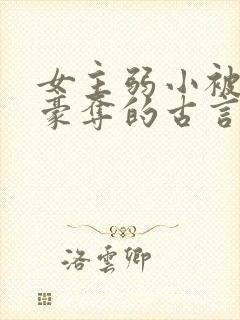 女主弱小被
豪夺的古言
洛云卿